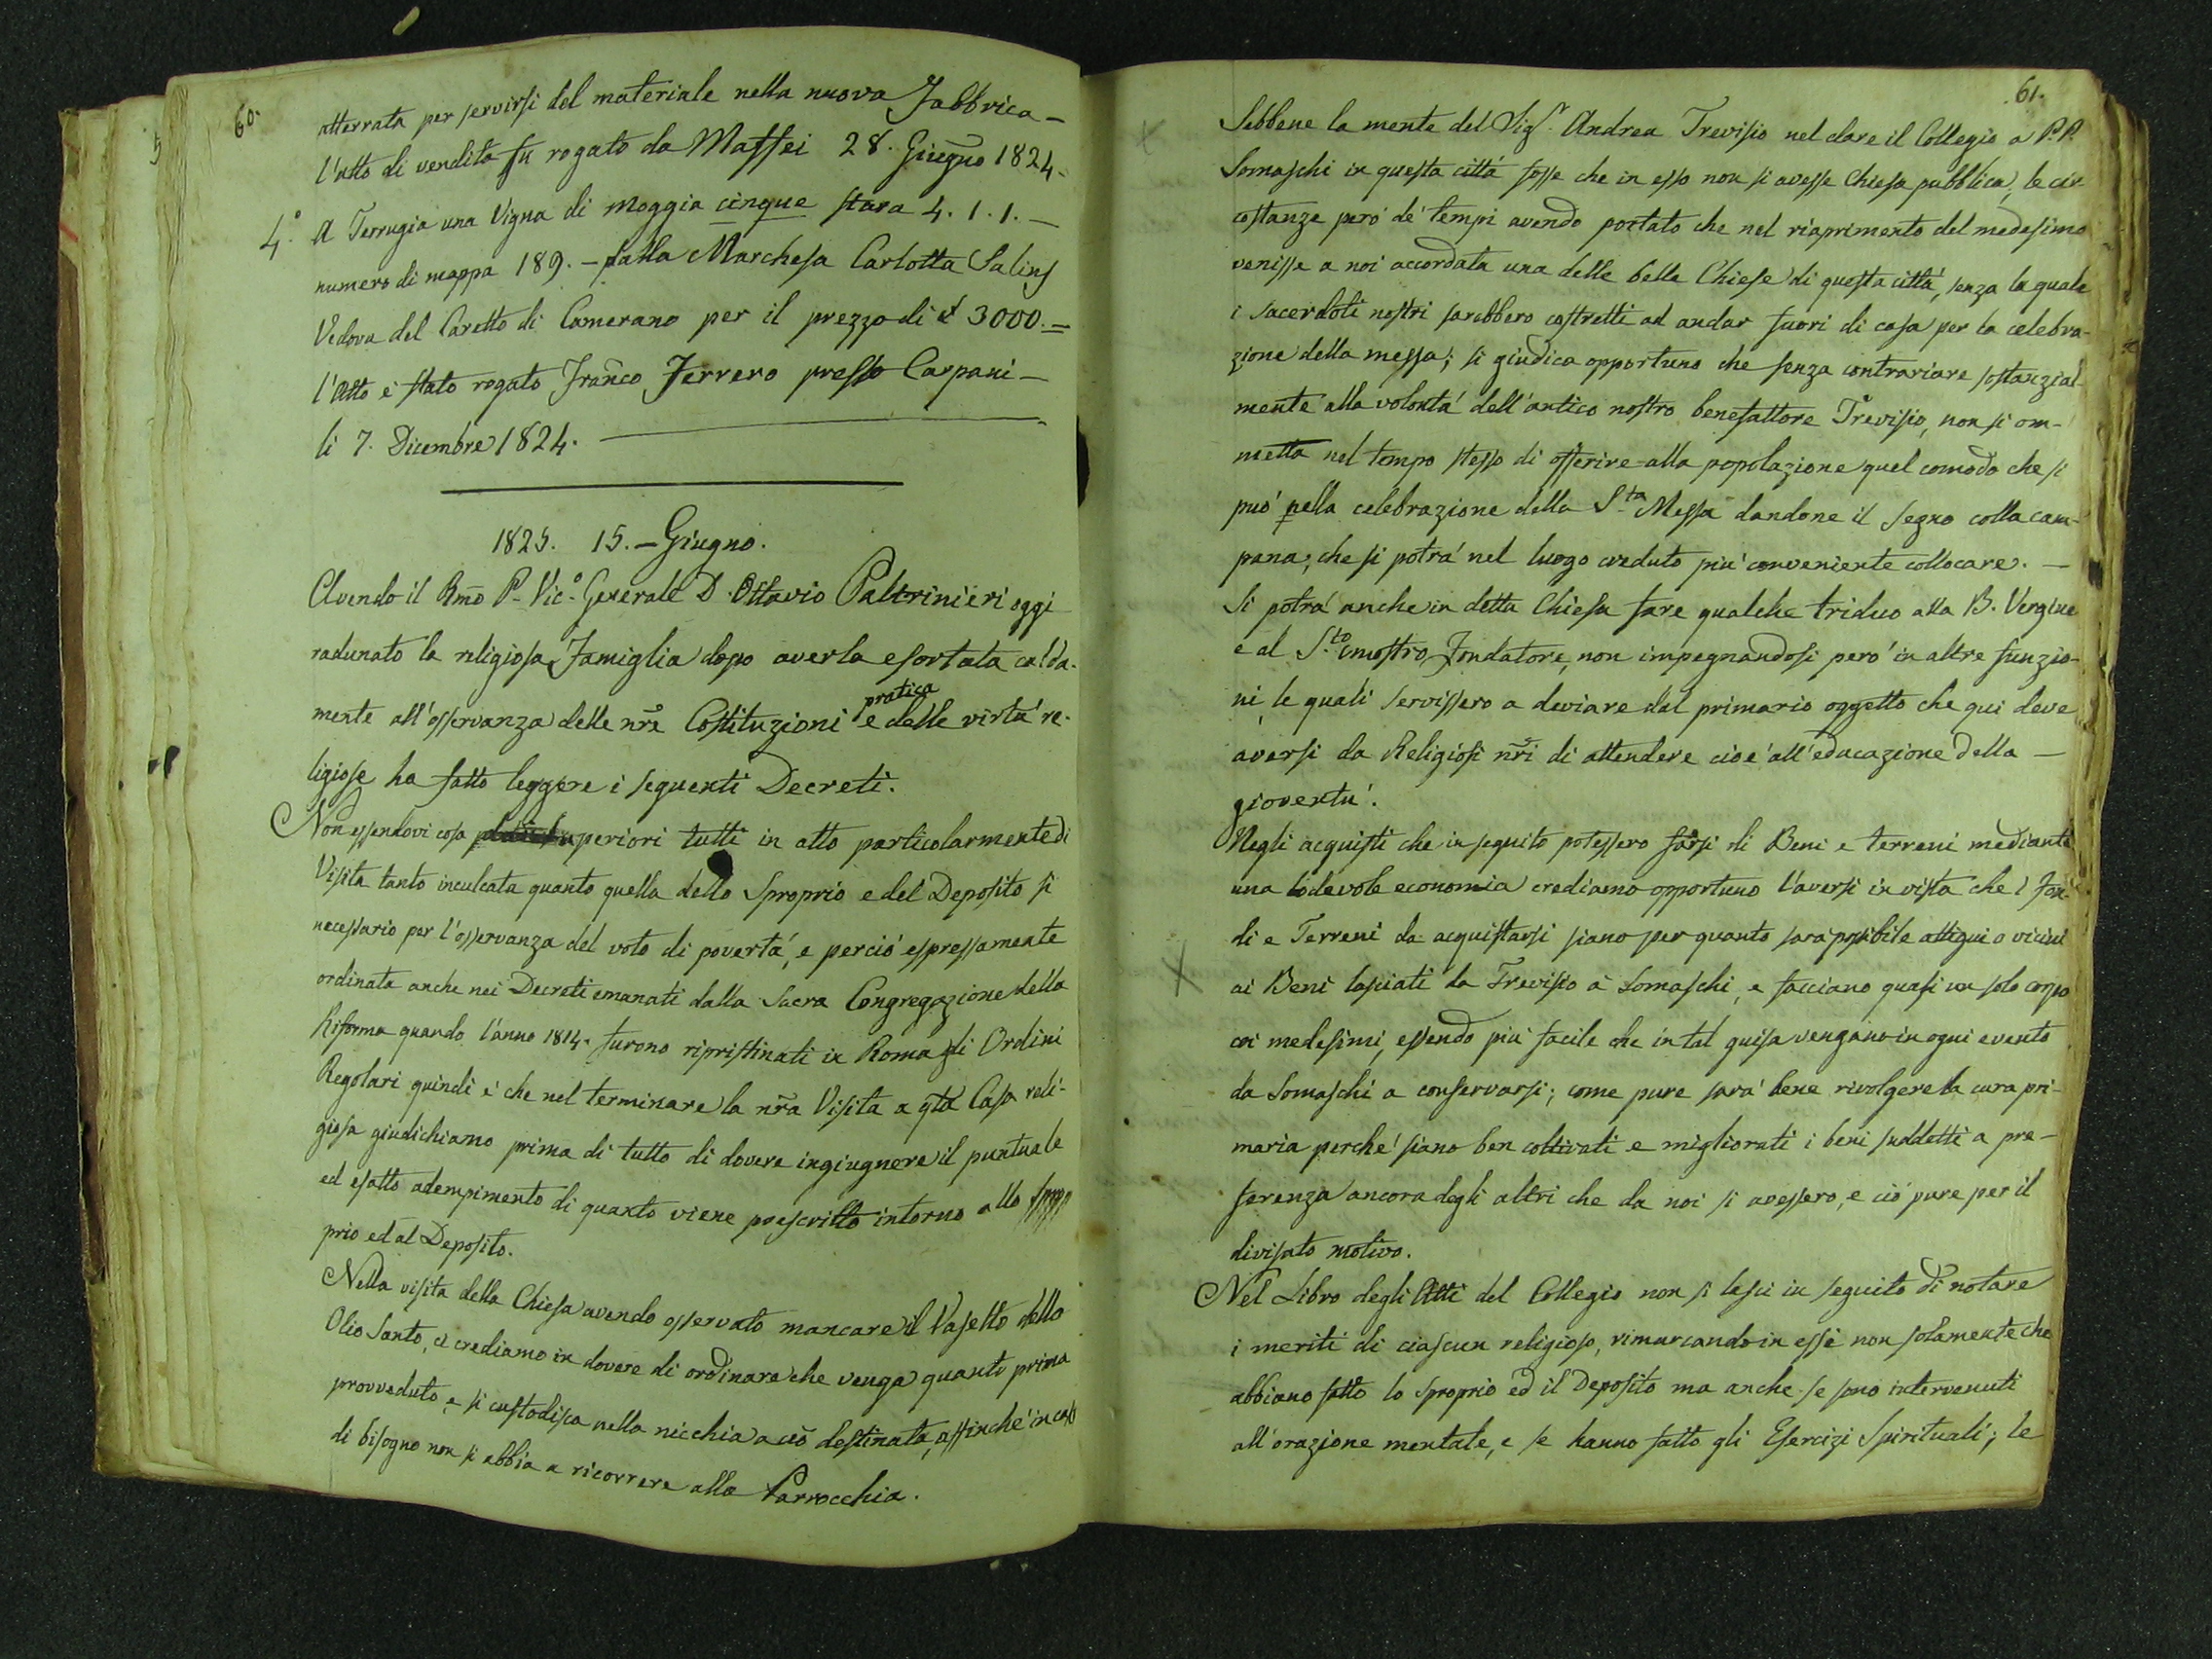 60.
atterrata per servirsi del materiale nella nuova Fabbrica –
l'atto di vendita fu rogato da Maffei 28. Giugno 1824.
4.° A Terrugia una Vigna di moggia cinque stara 4. 1. 1. –
numero di mappa 189. – dalla Marchesa Carlotta Salins
Vedova del Caretto di Camerano per il prezzo di £ 3000. =
l'Atto è stato rogato Franco Ferrero presso Carpani –
li 7. Dicembre 1824.
1825. 15. – Giugno.
Avendo il Rmo P. Vic.° Generale D. Ottavio Paltrinieri oggi
radunato la religiosa Famiglia dopo averla esortata calda-
mente all'osservanza delle nrē Costituzioni e pratica delle virtù re-
ligiose ha fatto leggere i seguenti Decreti.
Non essendovi cosa superiori tutti in atto particolarmente di
Visita tanto inculcata quanto quella dello Sproprio e del Deposito si
necessario per l'osservanza del voto di povertà, e perciò espressamente
ordinata anche nei Decreti emanati dalla Sacra Congregazione della
Riforma quando l'anno 1814. furono ripristinati in Roma gli Ordini
Regolari quindi è che nel terminare la nrā Visita a qtā Casa reli-
giosa giudichiamo prima di tutto di dovere ingiugnere il puntuale
ed esatto adempimento di quanto viene prescritto intorno allo spro-
prio ed al Deposito.
Nella visita della Chiesa avendo osservato mancare il Vasetto dello
Olio Santo, ci crediamo in dovere di ordinare che venga quanto prima
provveduto, e si custodisca nella nicchia a ciò destinata, affinché in caso
di bisogno non si abbia a ricorrere alla Parrocchia.
61.
Sebbene la mente del Sig.r Andrea Trevisio nel dare il Collegio a P.P.
Somaschi in questa città fosse che in esso non si avesse Chiesa pubblica, le cir
costanze però de' tempi avendo portato che nel riaprimento del medesimo
venisse a noi accordata una delle belle Chiese di questa città, senza la quale
i sacerdoti nostri sarebbero costretti ad andar fuori di casa per la celebra-
zione della messa; si giudica opportuno che senza contrariare sostanzial-
mente alla volontà dell'antico nostro benefattore Trevisio, non si om-
metta nel tempo stesso di offerire alla popolazione quel comodo che si
può nella celebrazione della S.ta Messa dandone il segno colla cam-
pana, che si potrà nel luogo creduto più conveniente collocare. –
Si potrà anche in detta Chiesa fare qualche triduo alla B. Vergine
e al S.to nostro Fondatore, non impegnandosi però in altre funzio-
ni, le quali servissero a deviare dal primario oggetto che qui deve
aversi da Religiosi nrī di attendere cioè all'educazione della –
gioventù.
Negli acquisti che in seguito potessero farsi di Beni e terreni mediante
una lodevole economia crediamo opportuno l'aversi in vista che i Fon-
di e Terreni da acquistarsi siano per quanto sarà possibile attigui o vicini
ai Beni lasciati da Trevisio a Somaschi, e facciano quasi un solo corpo
coi medesimi, essendo più facile che in tal guisa vengano in ogni evento
da Somaschi a conservarsi; come pure sarà bene rivolgere la cura pri-
maria perchè siano ben coltivati e migliorati i beni suddetti a pre-
ferenza ancora degli altri che da noi si avessero, e ciò pure per il
divisato motivo.
Nel Libro degli Atti del Collegio non si lasci in seguito di notare
i meriti di ciascun religioso, rimarcando in essi non solamente che
abbiano fatto lo sproprio ed il Deposito ma anche se sono intervenuti
all'orazione mentale, e se hanno fatto gli Esercizi Spirituali; le